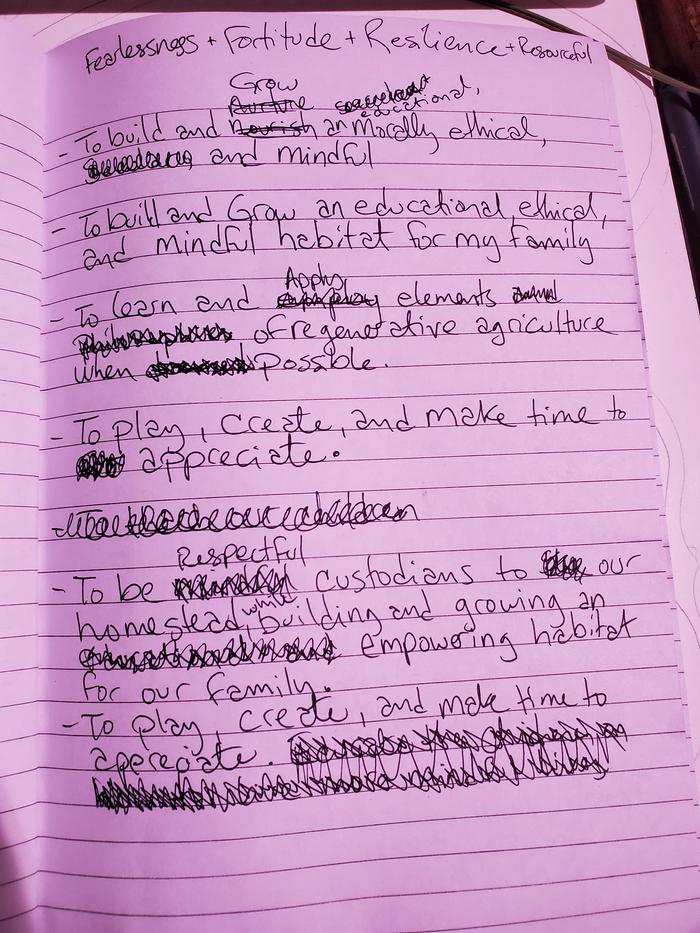 Fearlessness + Fortitude + Resilience + Resourceful
Grow
Nurture
educational,
- To build and Nourish an Morally ethical,
and mindful
- To build and Grow an educational, ethical,
and mindful habitat for my family
Apply
- To learn and employ elements
philosophies of regenerative agriculture
when possible.
- To play, create, and make time to
appreciate.
Respectful
- To be mindful custodians to our
homestead, while building and growing an
empowering habitat
for our family.
- To play, create, and make time to
appreciate.